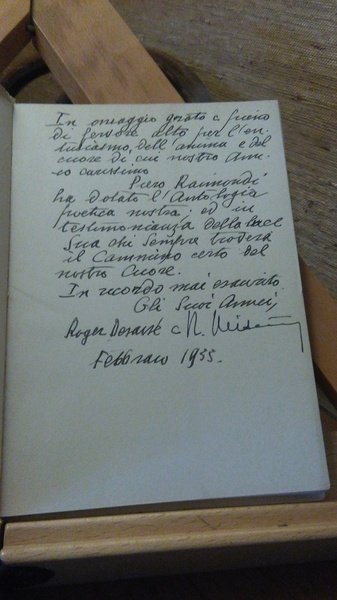 In omaggio grato e pieno
di fervore alto per l'en-
tusiasmo, dell'anima e del
cuore di cui nostro Ami-
co carissimo
Piero Raimondi
ha dotato l'Antologia
poetica nostra, ed in
testimonianza della
Sua che sempre troverà
il Cammino certo del
nostro Cuore.
In ricordo mai esaurito
Gli Suoi Amici,
Roger e N.
Febbraio 1955.